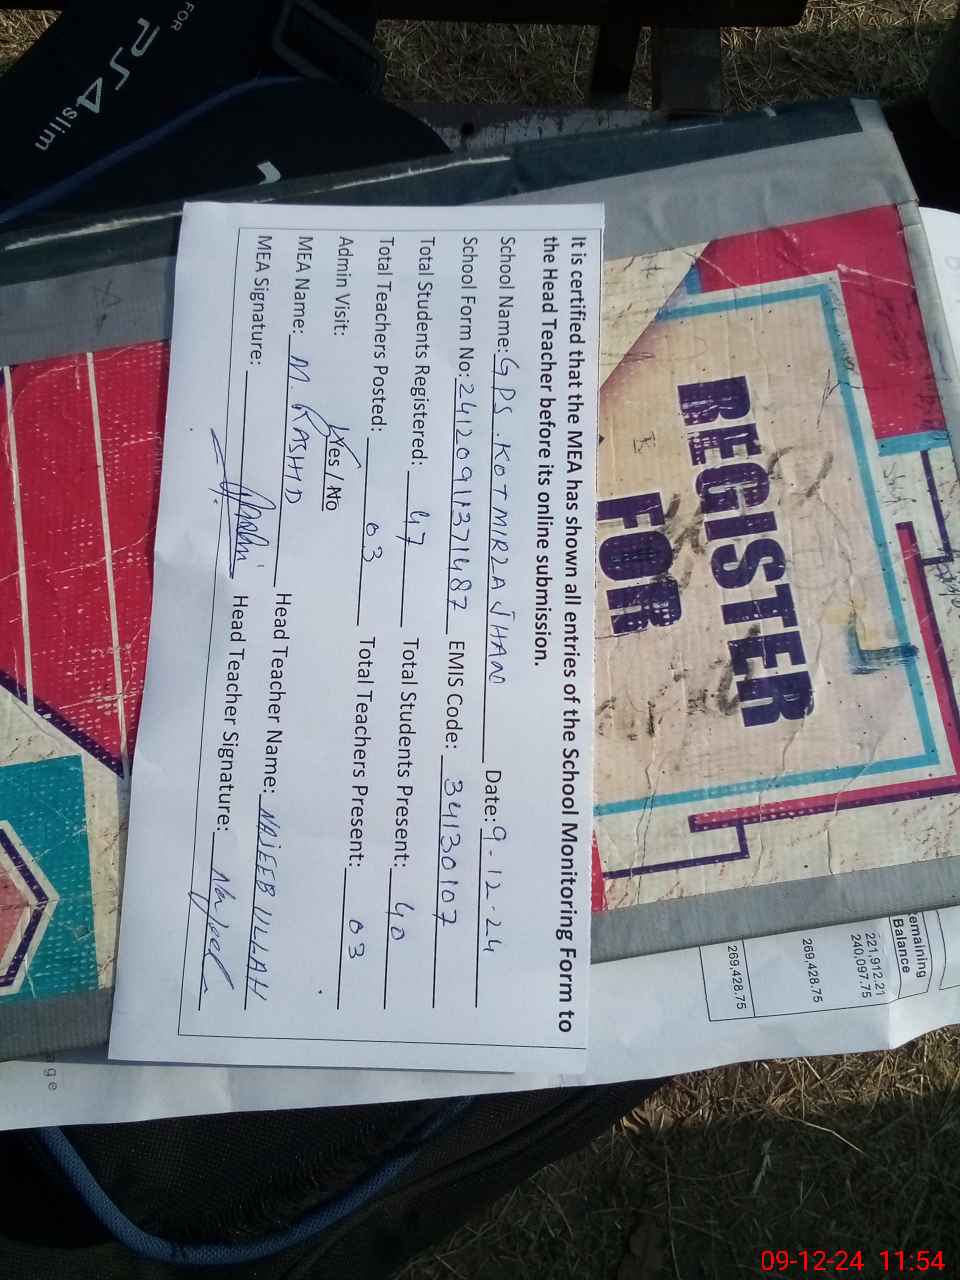 FOR
PS4 slim
REGISTER
FOR
It is certified that the MEA has shown all entries of the School Monitoring Form to
the Head Teacher before its online submission.
School Name: GPS. KOT MIRZA JHAN Date: 9-12-24
School Form No: 2412091371487 EMIS Code: 34130107
Total Students Registered: 47 Total Students Present: 40
Total Teachers Posted: 03 Total Teachers Present: 03
Admin Visit: Yes / No
MEA Name: M. RASHID Head Teacher Name: NAJEEB ULLAH
MEA Signature: Head Teacher Signature: Najeeb
emaining
Balance
221,912.21
240,097.75
269,428.75
269,428.75
age
09-12-24 11:54